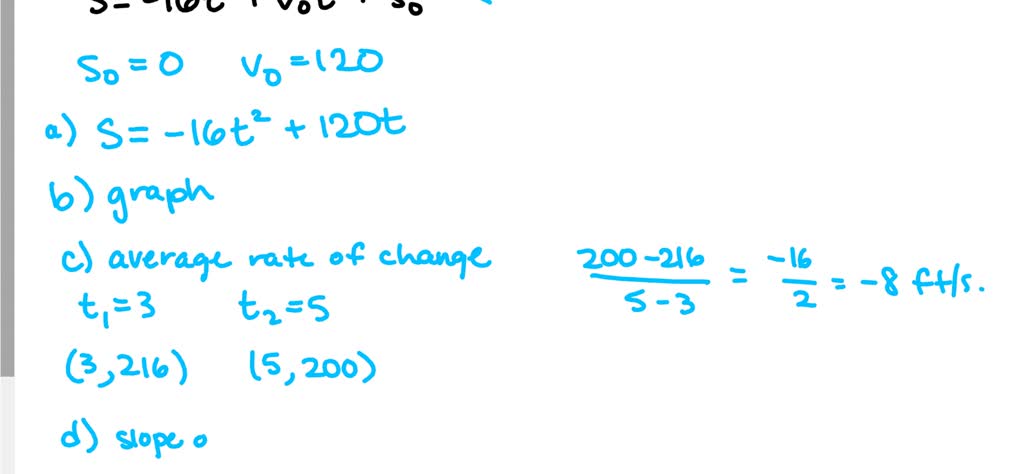 s = -16t + v₀t + s₀
s₀ = 0 v₀ = 120
a) s = -16t² + 120t
b) graph
c) average rate of change
t₁ = 3 t₂ = 5
(3, 216) (5, 200)
200 - 216 / 5 - 3 = -16 / 2 = -8 ft/s.
d) slope o